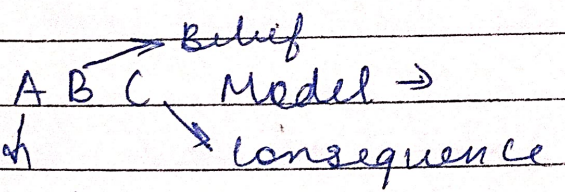 Belief
A B C Model →
Consequence